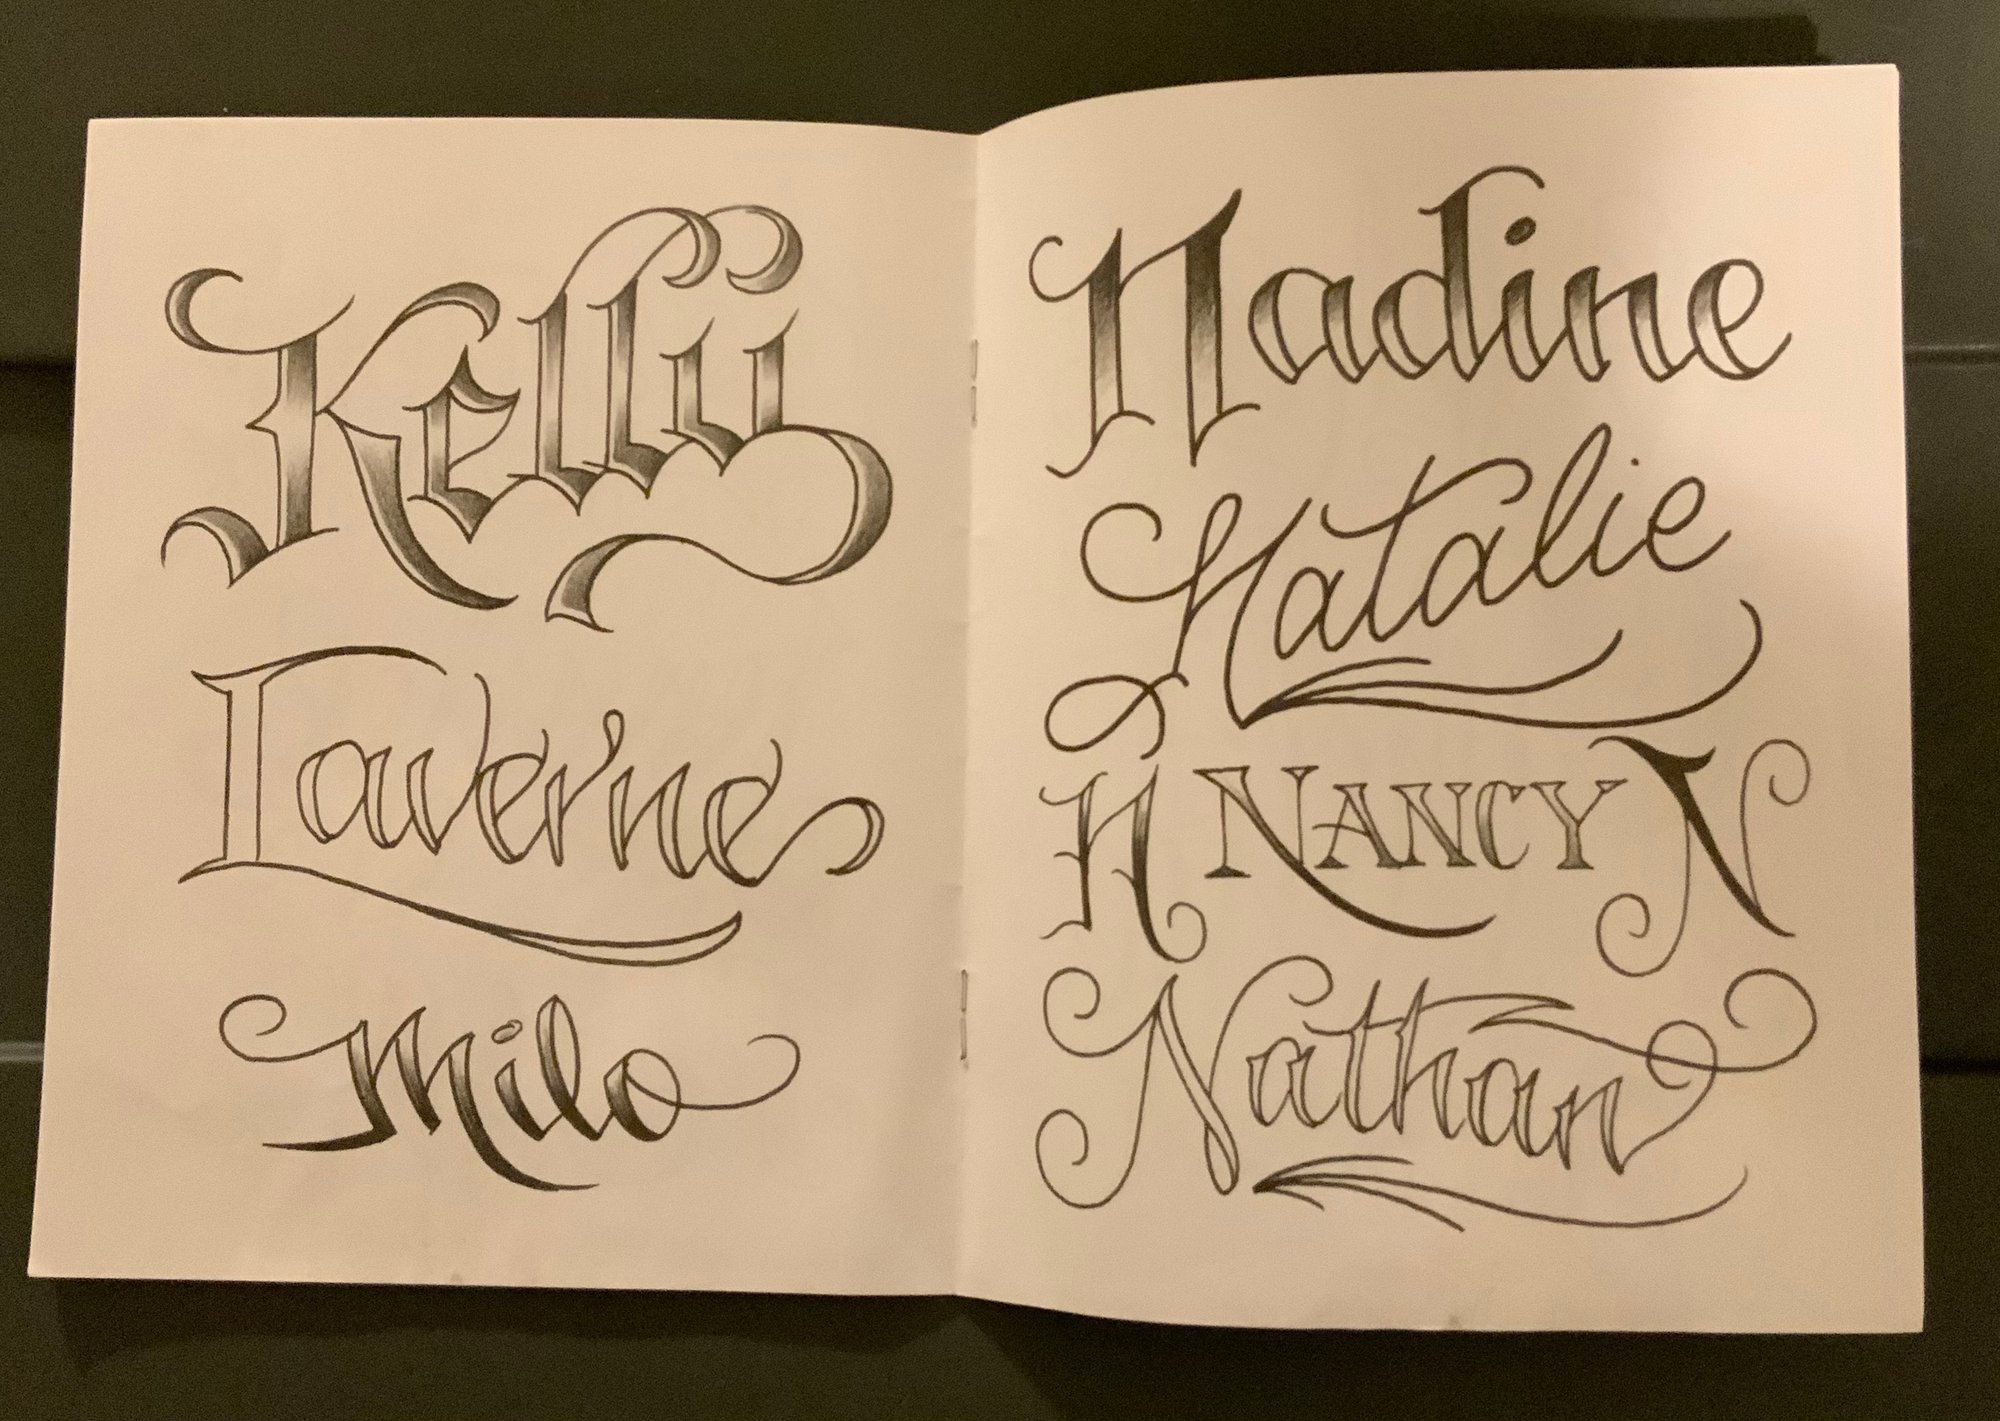 Kelly
Laverne
Milo
Nadine
Natalie
N NANCY N
Nathan